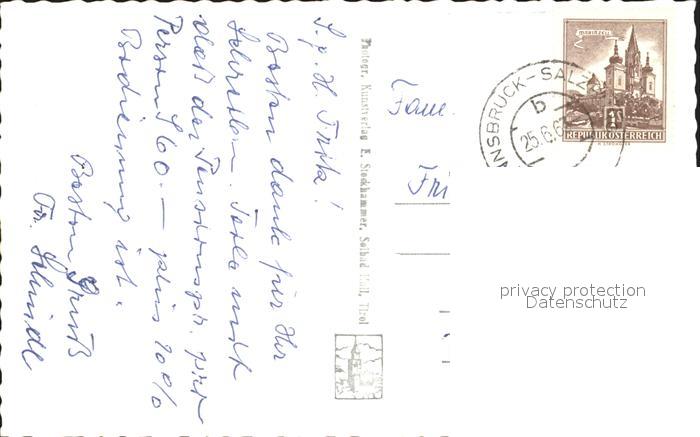 S. g. H. Fritz!
Besten dank für Ihr
Schreiben. Teile mit
daß der Pensionspr. per
Person S 60.— plus 10%
Bedienung ist.
Besten Gruß
Fr. Schindl
Photogr. Kunstverlag E. Stockhammer, Solbad Hall, Tirol
Fam.
Fri
MARIAZELL
1S
REPUBLIK ÖSTERREICH
INNSBRUCK-SALZB
b
25.6.6
privacy protection
Datenschutz